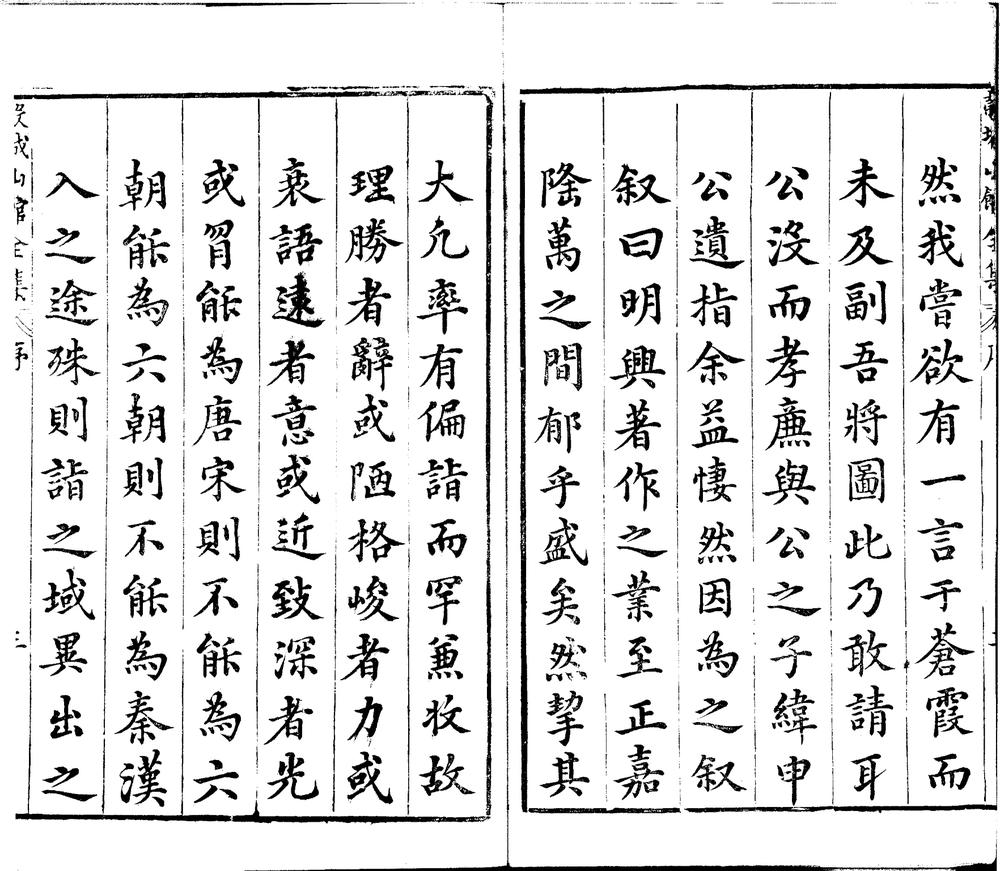 然我嘗欲有一言于蒼霞而
未及副吾將圖此乃敢請耳
公沒而孝廉與公之子緯申
公遺指余益悽然因為之叙
叙曰明興著作之業至正嘉
隆萬之間郁乎盛矣然挈其
大凢率有偏詣而罕兼收故
理勝者辭或陋格峻者力或
衰語逺者意或近致深者光
或胷能為唐宋則不能為六
朝能為六朝則不能為秦漢
入之途殊則詣之域異出之
穀城山館全集 序 三